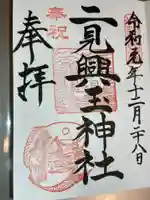 令和元年十二月二八日
二見興玉神社
奉祝
奉拝